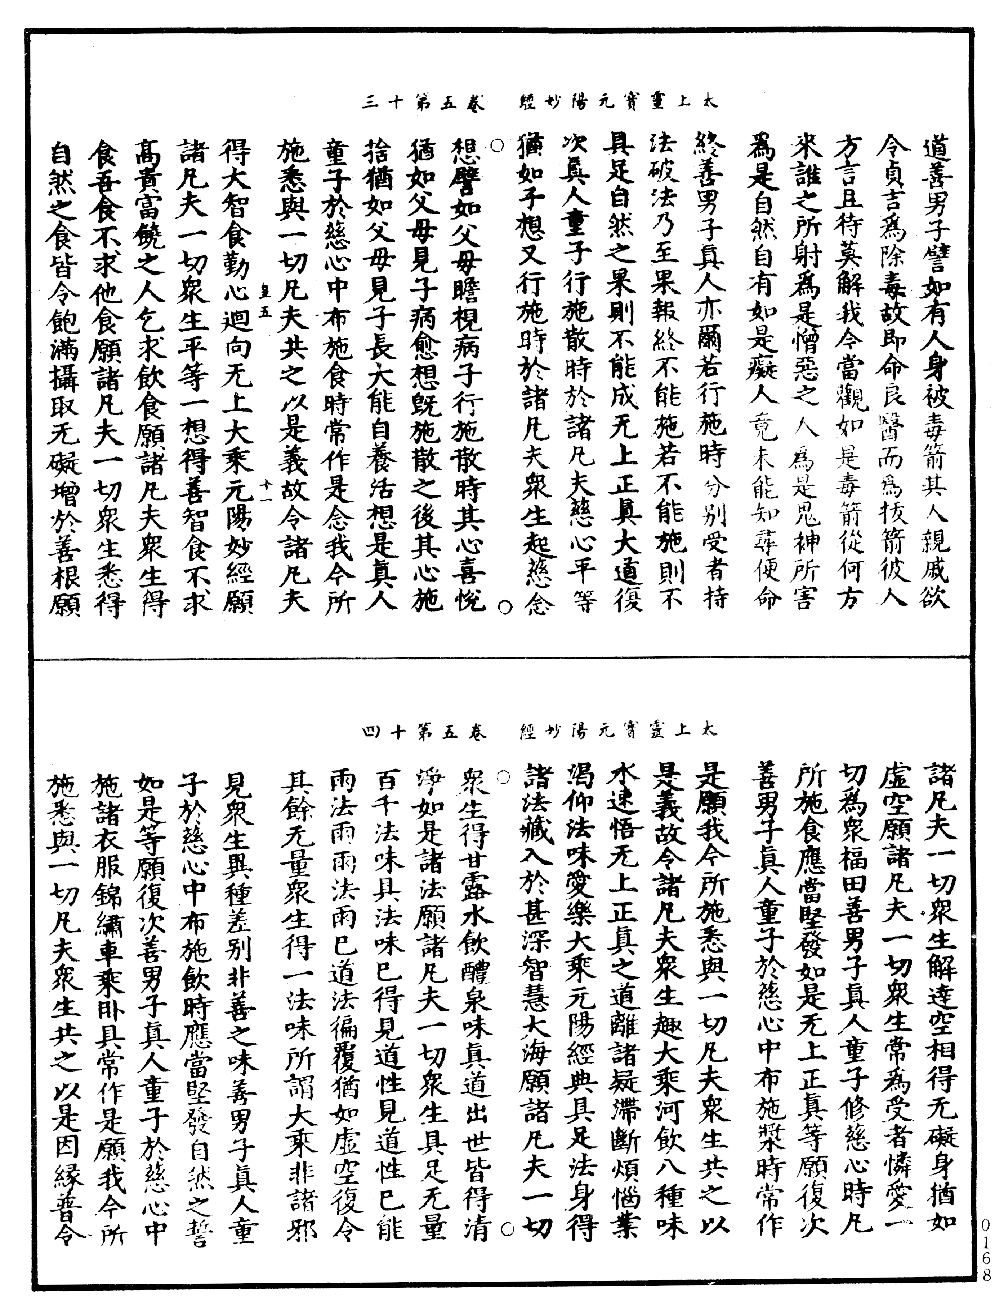 太上靈寶元陽妙經　卷五第十三
道善男子譬如有人身被毒箭其人親戚欲
令貞吉為除毒故即命良醫而為拔箭彼人
方言且待莫解我今當觀如是毒箭從何方
來誰之所射為是憎惡之人為是鬼神所害
為是自然自有如是癡人竟未能知尋便命
終善男子真人亦爾若行施時分別受者持
法破法乃至果報終不能施若不能施則不
具足自然之果則不能成无上正真大道復
次真人童子行施散時於諸凡夫慈心平等
猶如子想又行施時於諸凡夫衆生起慈念
想譬如父母瞻視病子行施散時其心喜悅
猶如父母見子病愈想既施散之後其心施
捨猶如父母見子長大能自養活想是真人
童子於慈心中布施食時常作是念我今所
施悉與一切凡夫共之以是義故令諸凡夫
皇五　十一
得大智食勤心迴向无上大乘元陽妙經願
諸凡夫一切衆生平等一想得善智食不求
高貴富饒之人乞求飲食願諸凡夫衆生得
食吾食不求他食願諸凡夫一切衆生悉得
自然之食皆令飽滿攝取无礙增於善根願
太上靈寶元陽妙經　卷五第十四
諸凡夫一切衆生解達空相得无礙身猶如
虛空願諸凡夫一切衆生常為受者憐愛一
切為衆福田善男子真人童子修慈心時凡
所施食應當堅發如是无上正真等願復次
善男子真人童子於慈心中布施漿時常作
是願我今所施悉與一切凡夫衆生共之以
是義故令諸凡夫衆生趣大乘河飲八種味
水速悟无上正真之道離諸疑滯斷煩惱業
渴仰法味愛樂大乘元陽經典具足法身得
諸法藏入於甚深智慧大海願諸凡夫一切
衆生得甘露水飲醴泉味真道出世皆得清
淨如是諸法願諸凡夫一切衆生具足无量
百千法味具法味已得見道性見道性已能
雨法雨雨法雨已道法徧覆猶如虛空復令
其餘无量衆生得一法味所謂大乘非諸邪
見衆生異種差別非善之味善男子真人童
子於慈心中布施飲時應當堅發自然之誓
如是等願復次善男子真人童子於慈心中
施諸衣服錦繡車乘臥具常作是願我今所
施悉與一切凡夫衆生共之以是因緣普令
0168